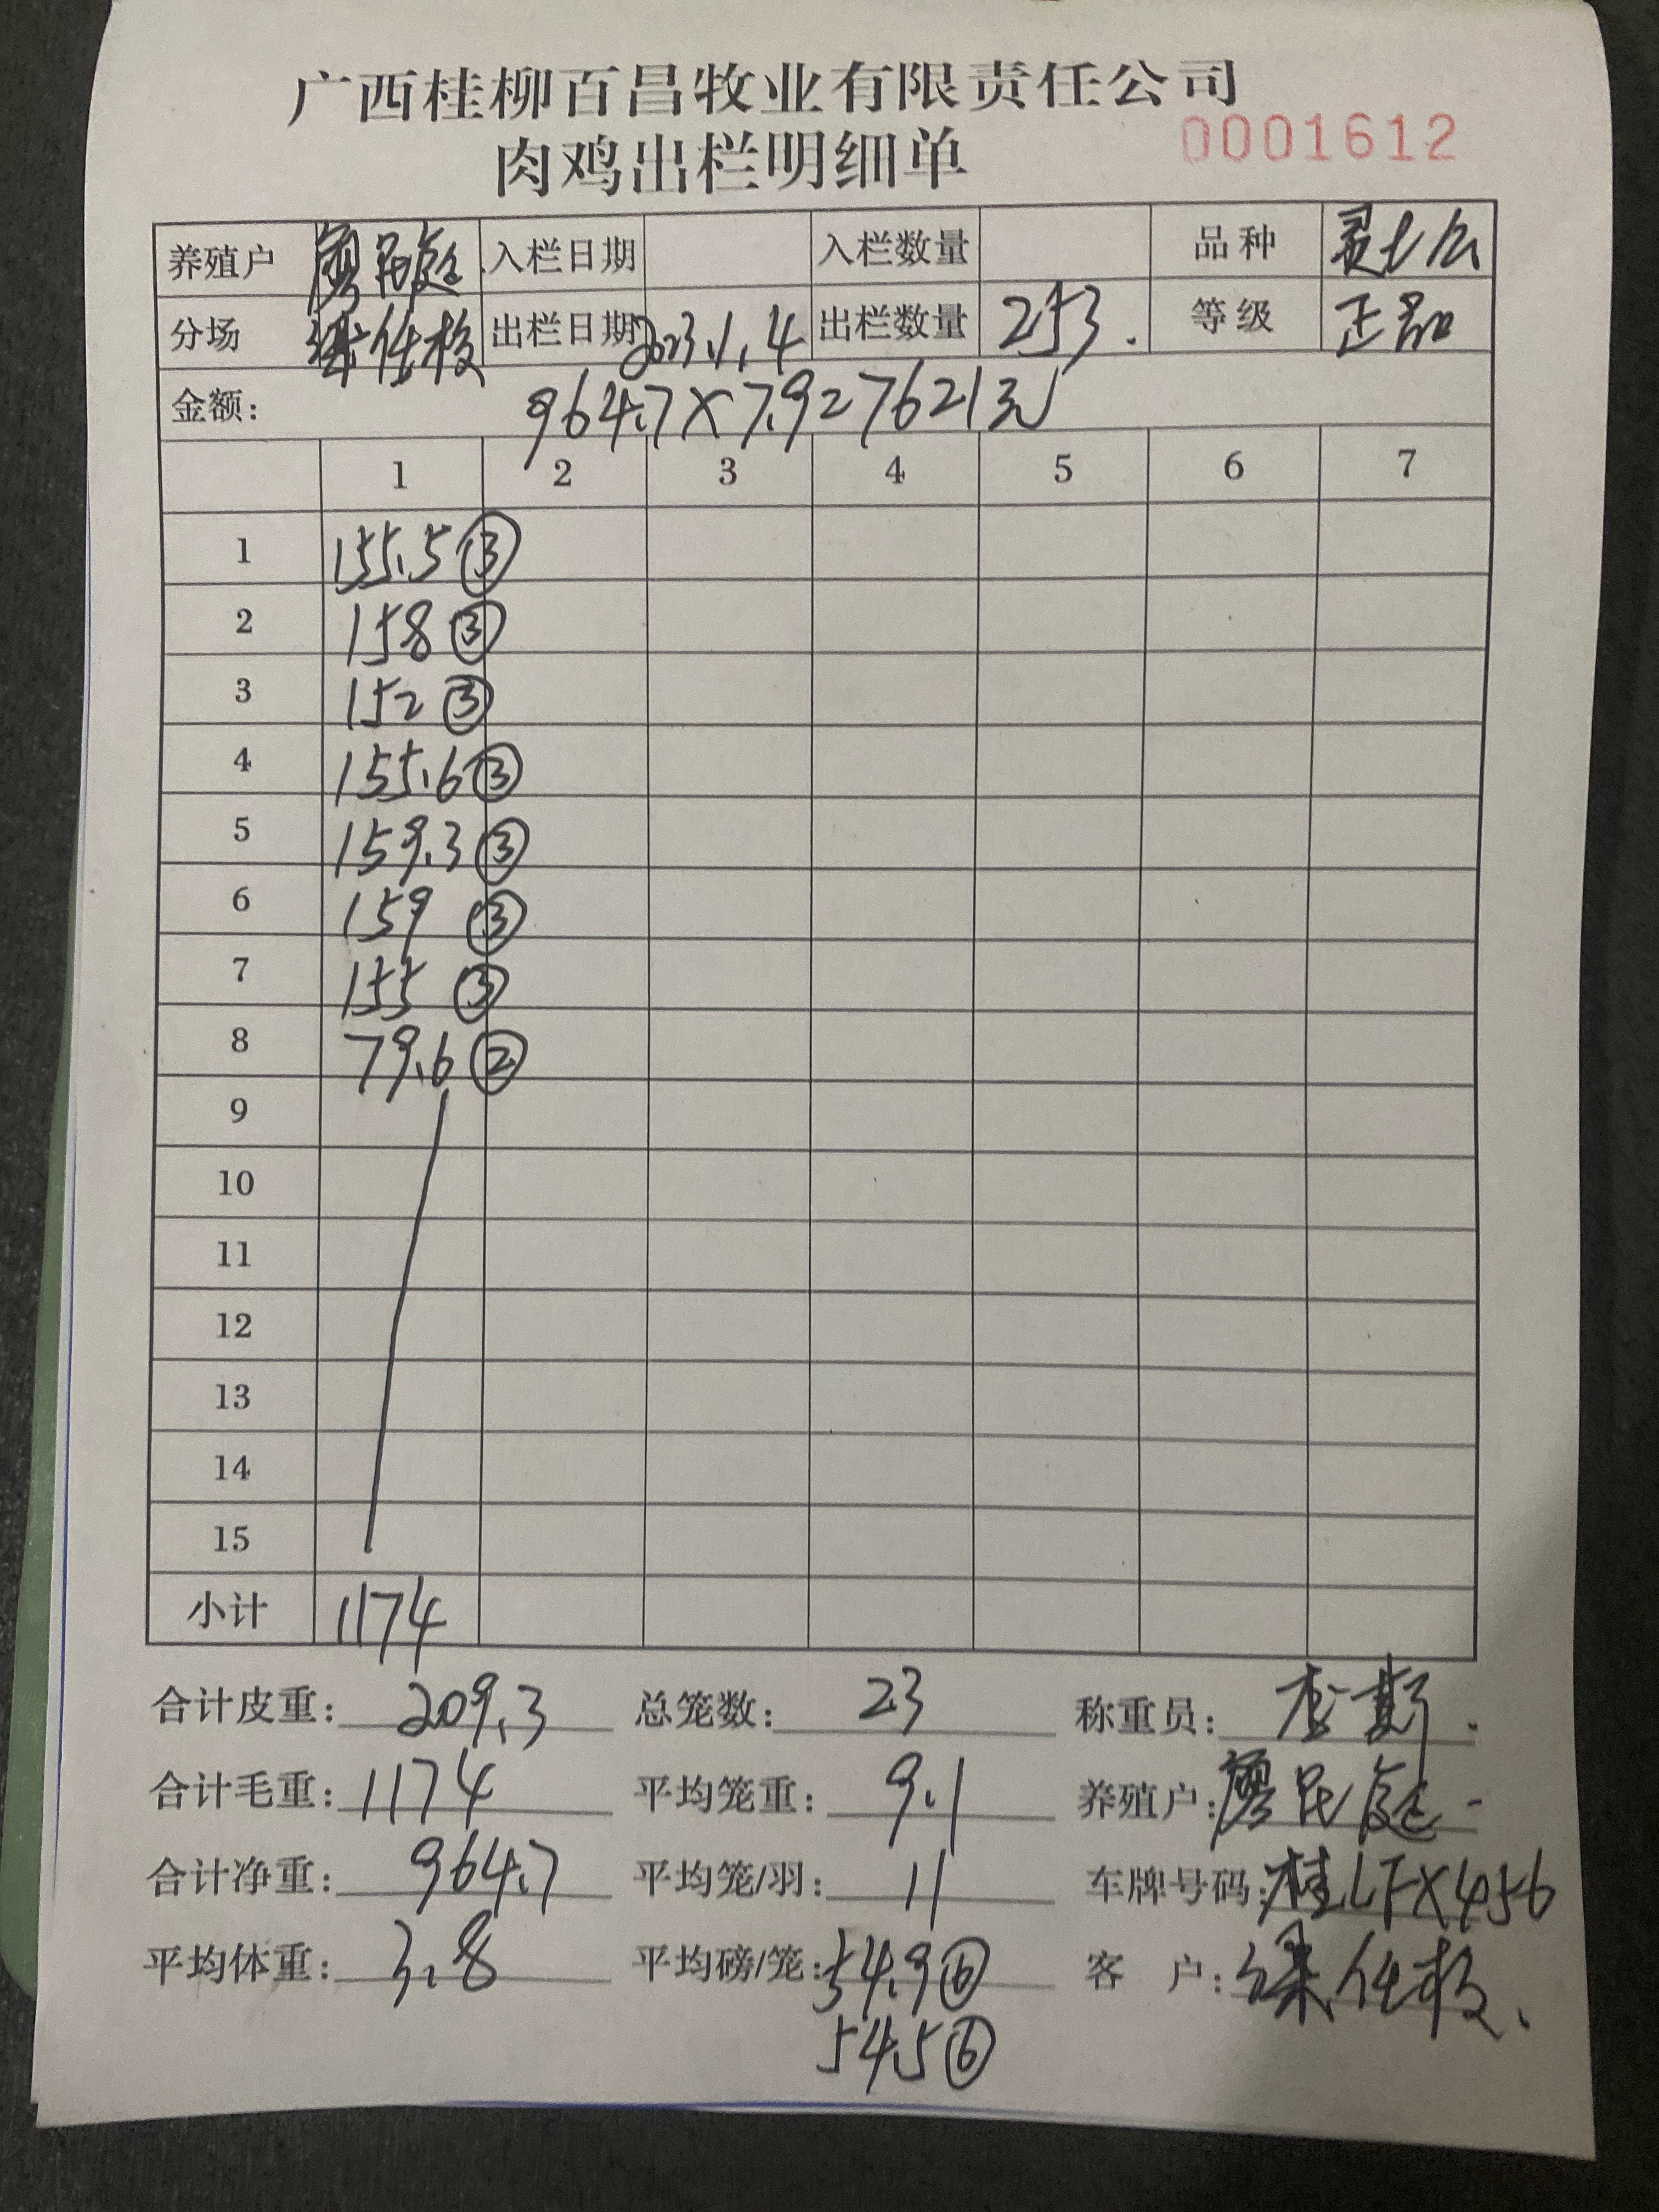 广西桂柳百昌牧业有限责任公司
肉鸡出栏明细单 0001612
养殖户 廖民庭 入栏日期 入栏数量 品种 灵土公
分场 梁任 出栏日期 2023.1.4 出栏数量 253. 等级 正品
金额: 964.7×7.9=7621元
1 2 3 4 5 6 7
1 155.5 ③
2 158 ③
3 152 ③
4 155.6 ③
5 159.3 ③
6 159 ③
7 155 ③
8 79.6 ②
9
10
11
12
13
14
15
小计 1174
合计皮重: 209.3 总笼数: 23 称重员:
合计毛重: 1174 平均笼重: 9.1 养殖户: 廖民庭
合计净重: 964.7 平均笼/羽: 11 车牌号码: 桂LFX456
平均体重: 3.8 平均磅/笼: 54.9 ⑥ 客 户: 梁任
54.5 ⑥